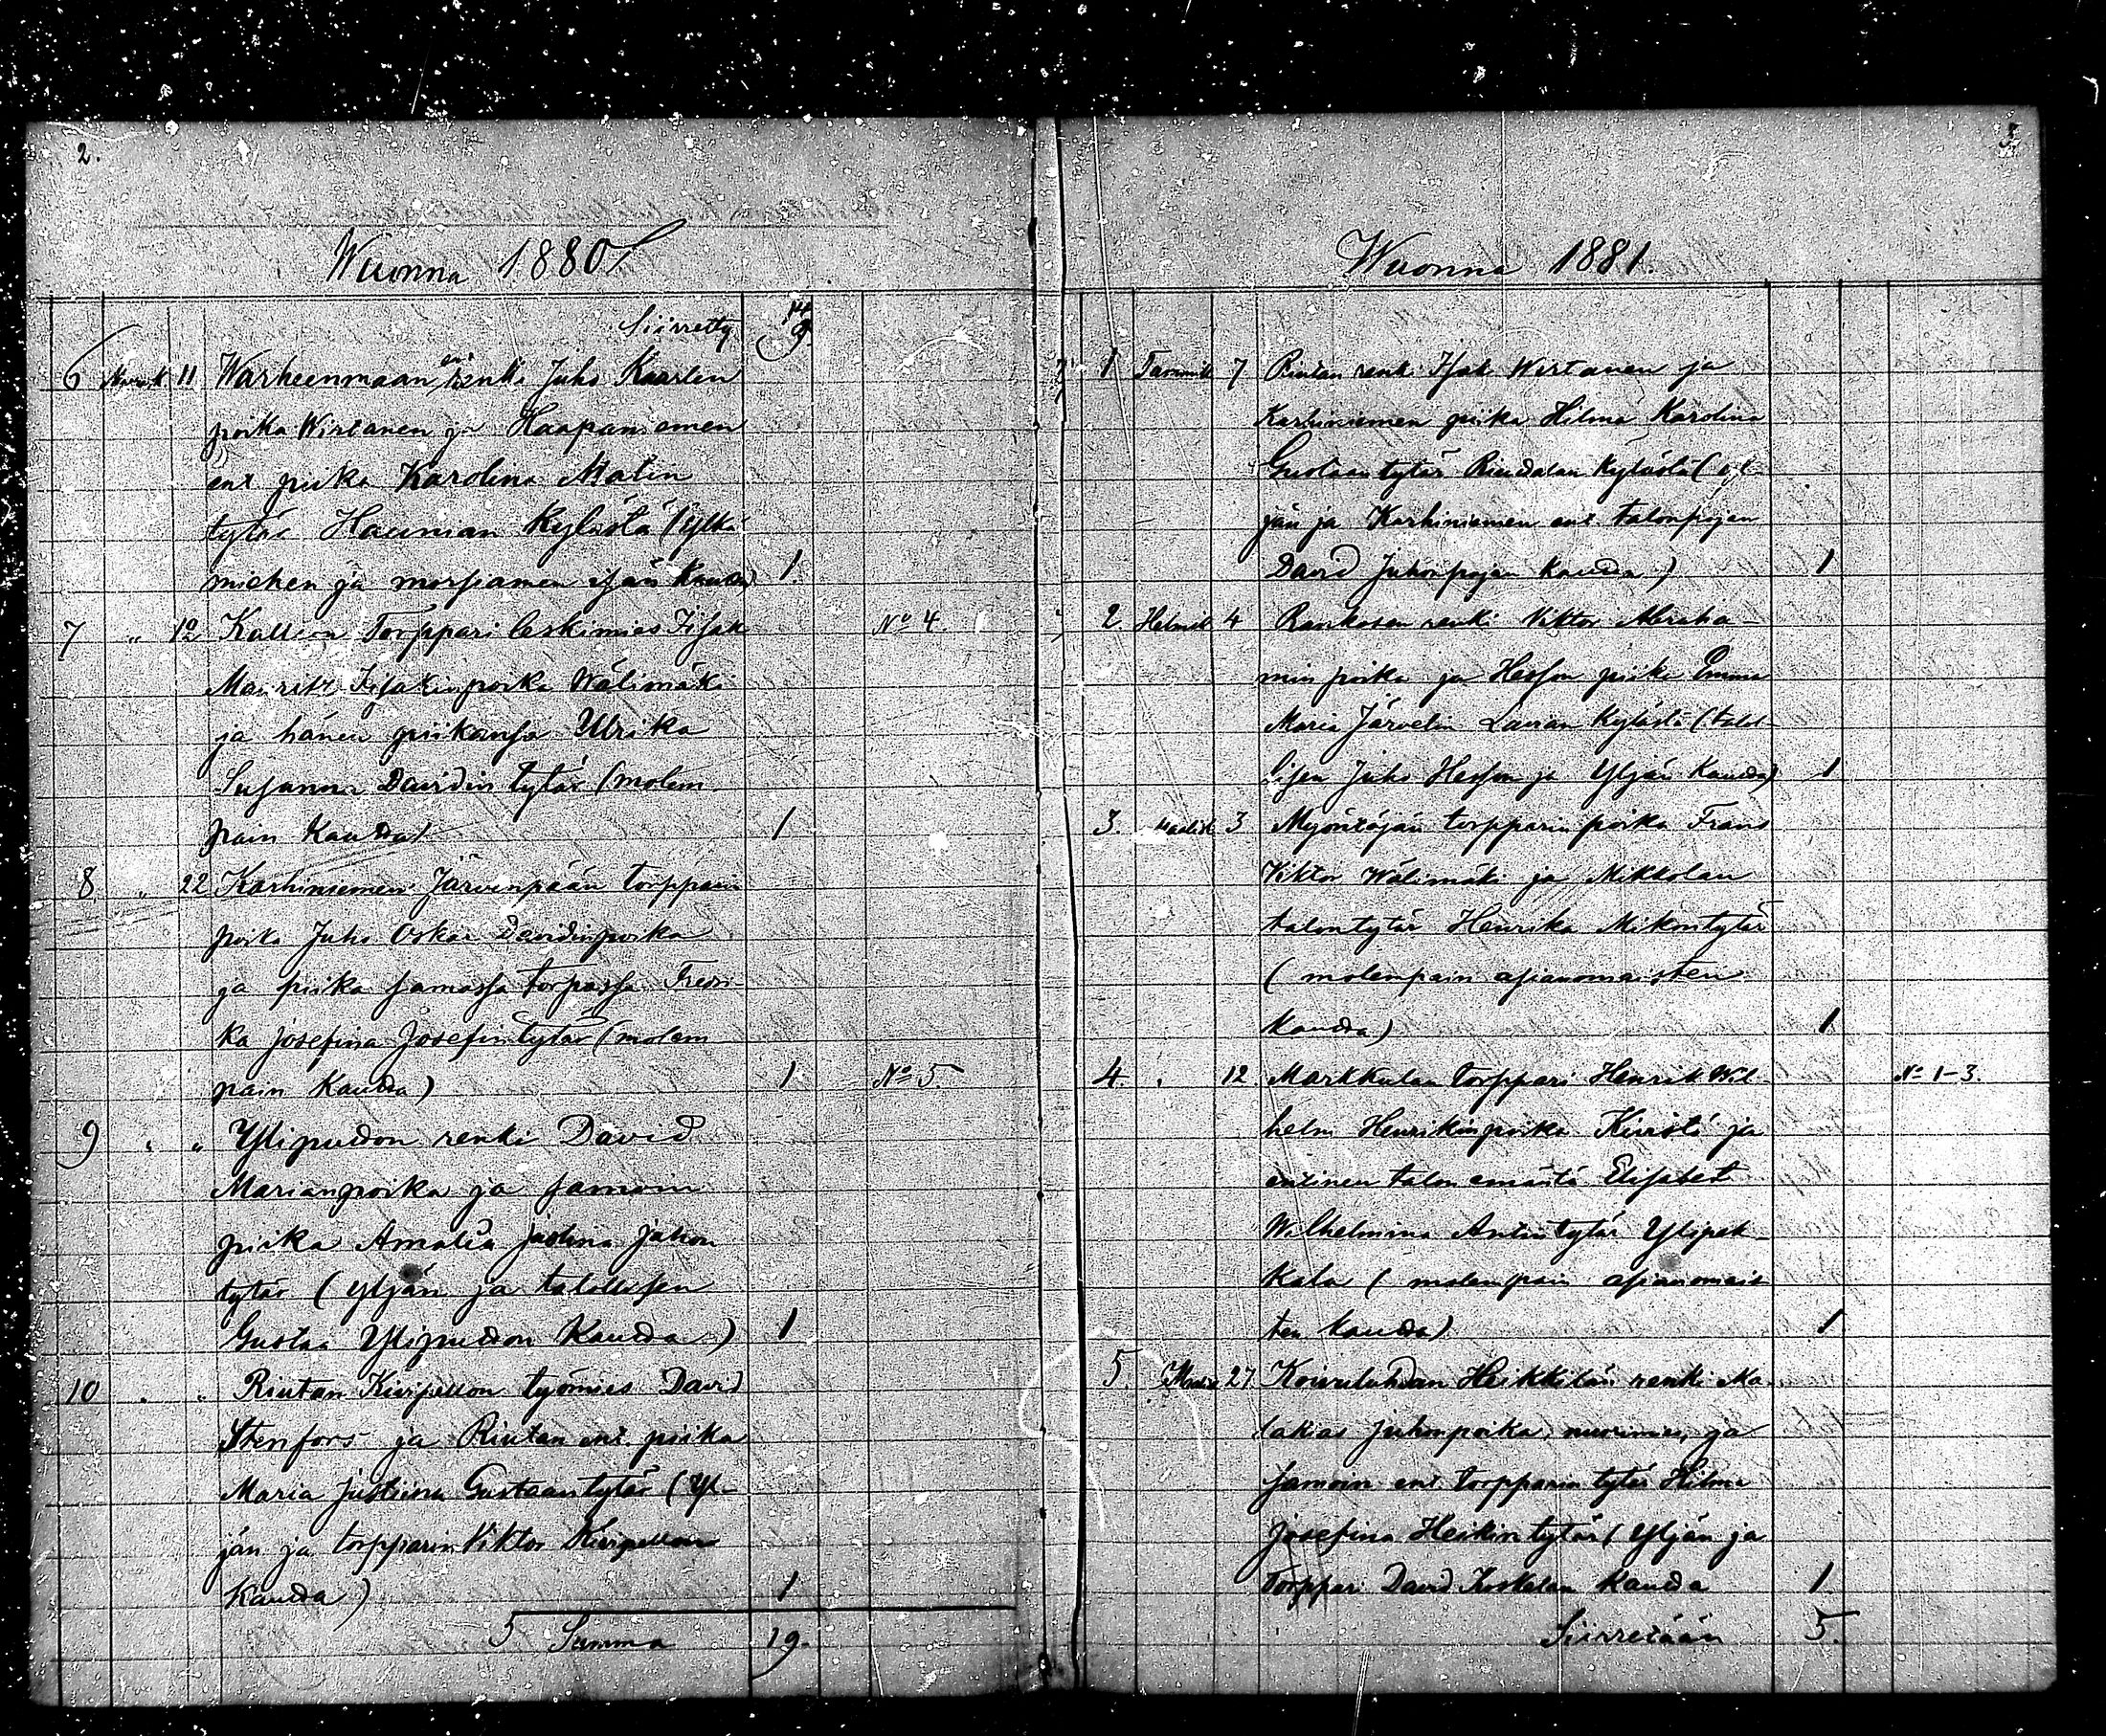 2.
Wuonna 1880
Siirretty 14 9
6 Marrask 11 Warheenmaan ent renki Juho Kaarlen
poika Wirtanen ja Haapaniemen
ent piika Karolina Matin
tytär Hauman Kylästä (ylkä
miehen ja morsiamen isän kautta) 1.
7 " 12 Kallion Torppari leskimies Iisak No 4.
Mauritz Iisakinpoika Wälimäki
ja hänen piikansa Ulrika
Susanna Davidin tytär (molem
pain kautta) 1
8. " 22 Karhiniemen Järvenpään torpparin
poika Juho Oskar Davidinpoika
ja piika samassa torpassa Fredri
ka Josefina Josefintytär (molem
pain kautta) 1 No 5
9 " " Ylipudon renki David
Marianpoika ja samoin
piika Amalia Justina Juhon
tytär (Yljän ja talollisen
Gustaa Ylipudon kautta) 1
10 " " Riutan Kivipellon työmies David
Stenfors ja Riutan ent. piika
Maria Justiina Gustaantytär (Yl-
jän ja torpparin Viktor Kivipellon
kautta) 1
5 Summa 19.
3
Wuonna 1881.
1 Tammik 7 Riutan renki Isak Wirtanen ja
Karhiniemen piika Hilma Karolina
Gustaantytär Riudalan kylästä (yl-
jän ja Karhiniemen ent. talonpojan
David Juhonpojan kautta) 1
2 Helmik 4 Rankosen renki Viktor Abraha-
min poika ja Hesson piika Emma
Maria Järvelin Lauran Kylästä (talol-
lisen Juho Hesson ja Yljän kautta) 1
3. Maalisk 3 Myöntäjän torpparin poika Frans
Viktor Wälimäki ja Mikkolan
talontytär Henrika Mikontytär
(molempain asianomaisten
kautta) 1
4. " 12. Markkulan torppari Henrik Wil- No 1-3.
helm Henrikinpoika Kuristi ja
entinen talon emäntä Elisabet
Wilhelmina Antintytär Ylipek-
kala (molempain asianomais
ten kautta) 1
5. 27. Koivuluhdan Heikkilän renki Ma-
lakias Juhonpoika, nuorimies, ja
samoin ent. torpparin tytär Hilma
Josefina Heikintytär (Yljän ja
torppari David Koskelan kautta 1
Siirretään 5.